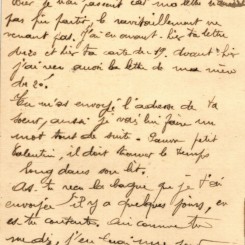 pas pu partir, le ravitaillement ne
venant pas, j'en avant-hier ta lettre
du 20 et hier ta carte du 19. Avant-hier
j'ai reçu aussi la lettre de ma mère
du 20!
Tu m'as envoyé l'adresse de ta
sœur, aussi je vais lui faire un
mot tout de suite. Pauvre petit
Valentin, il doit trouver le temps
long dans son lit.
As-tu reçu la bague que je t'ai
envoyée il y a quelques jours, en
es-tu contente,
me dis, j'en